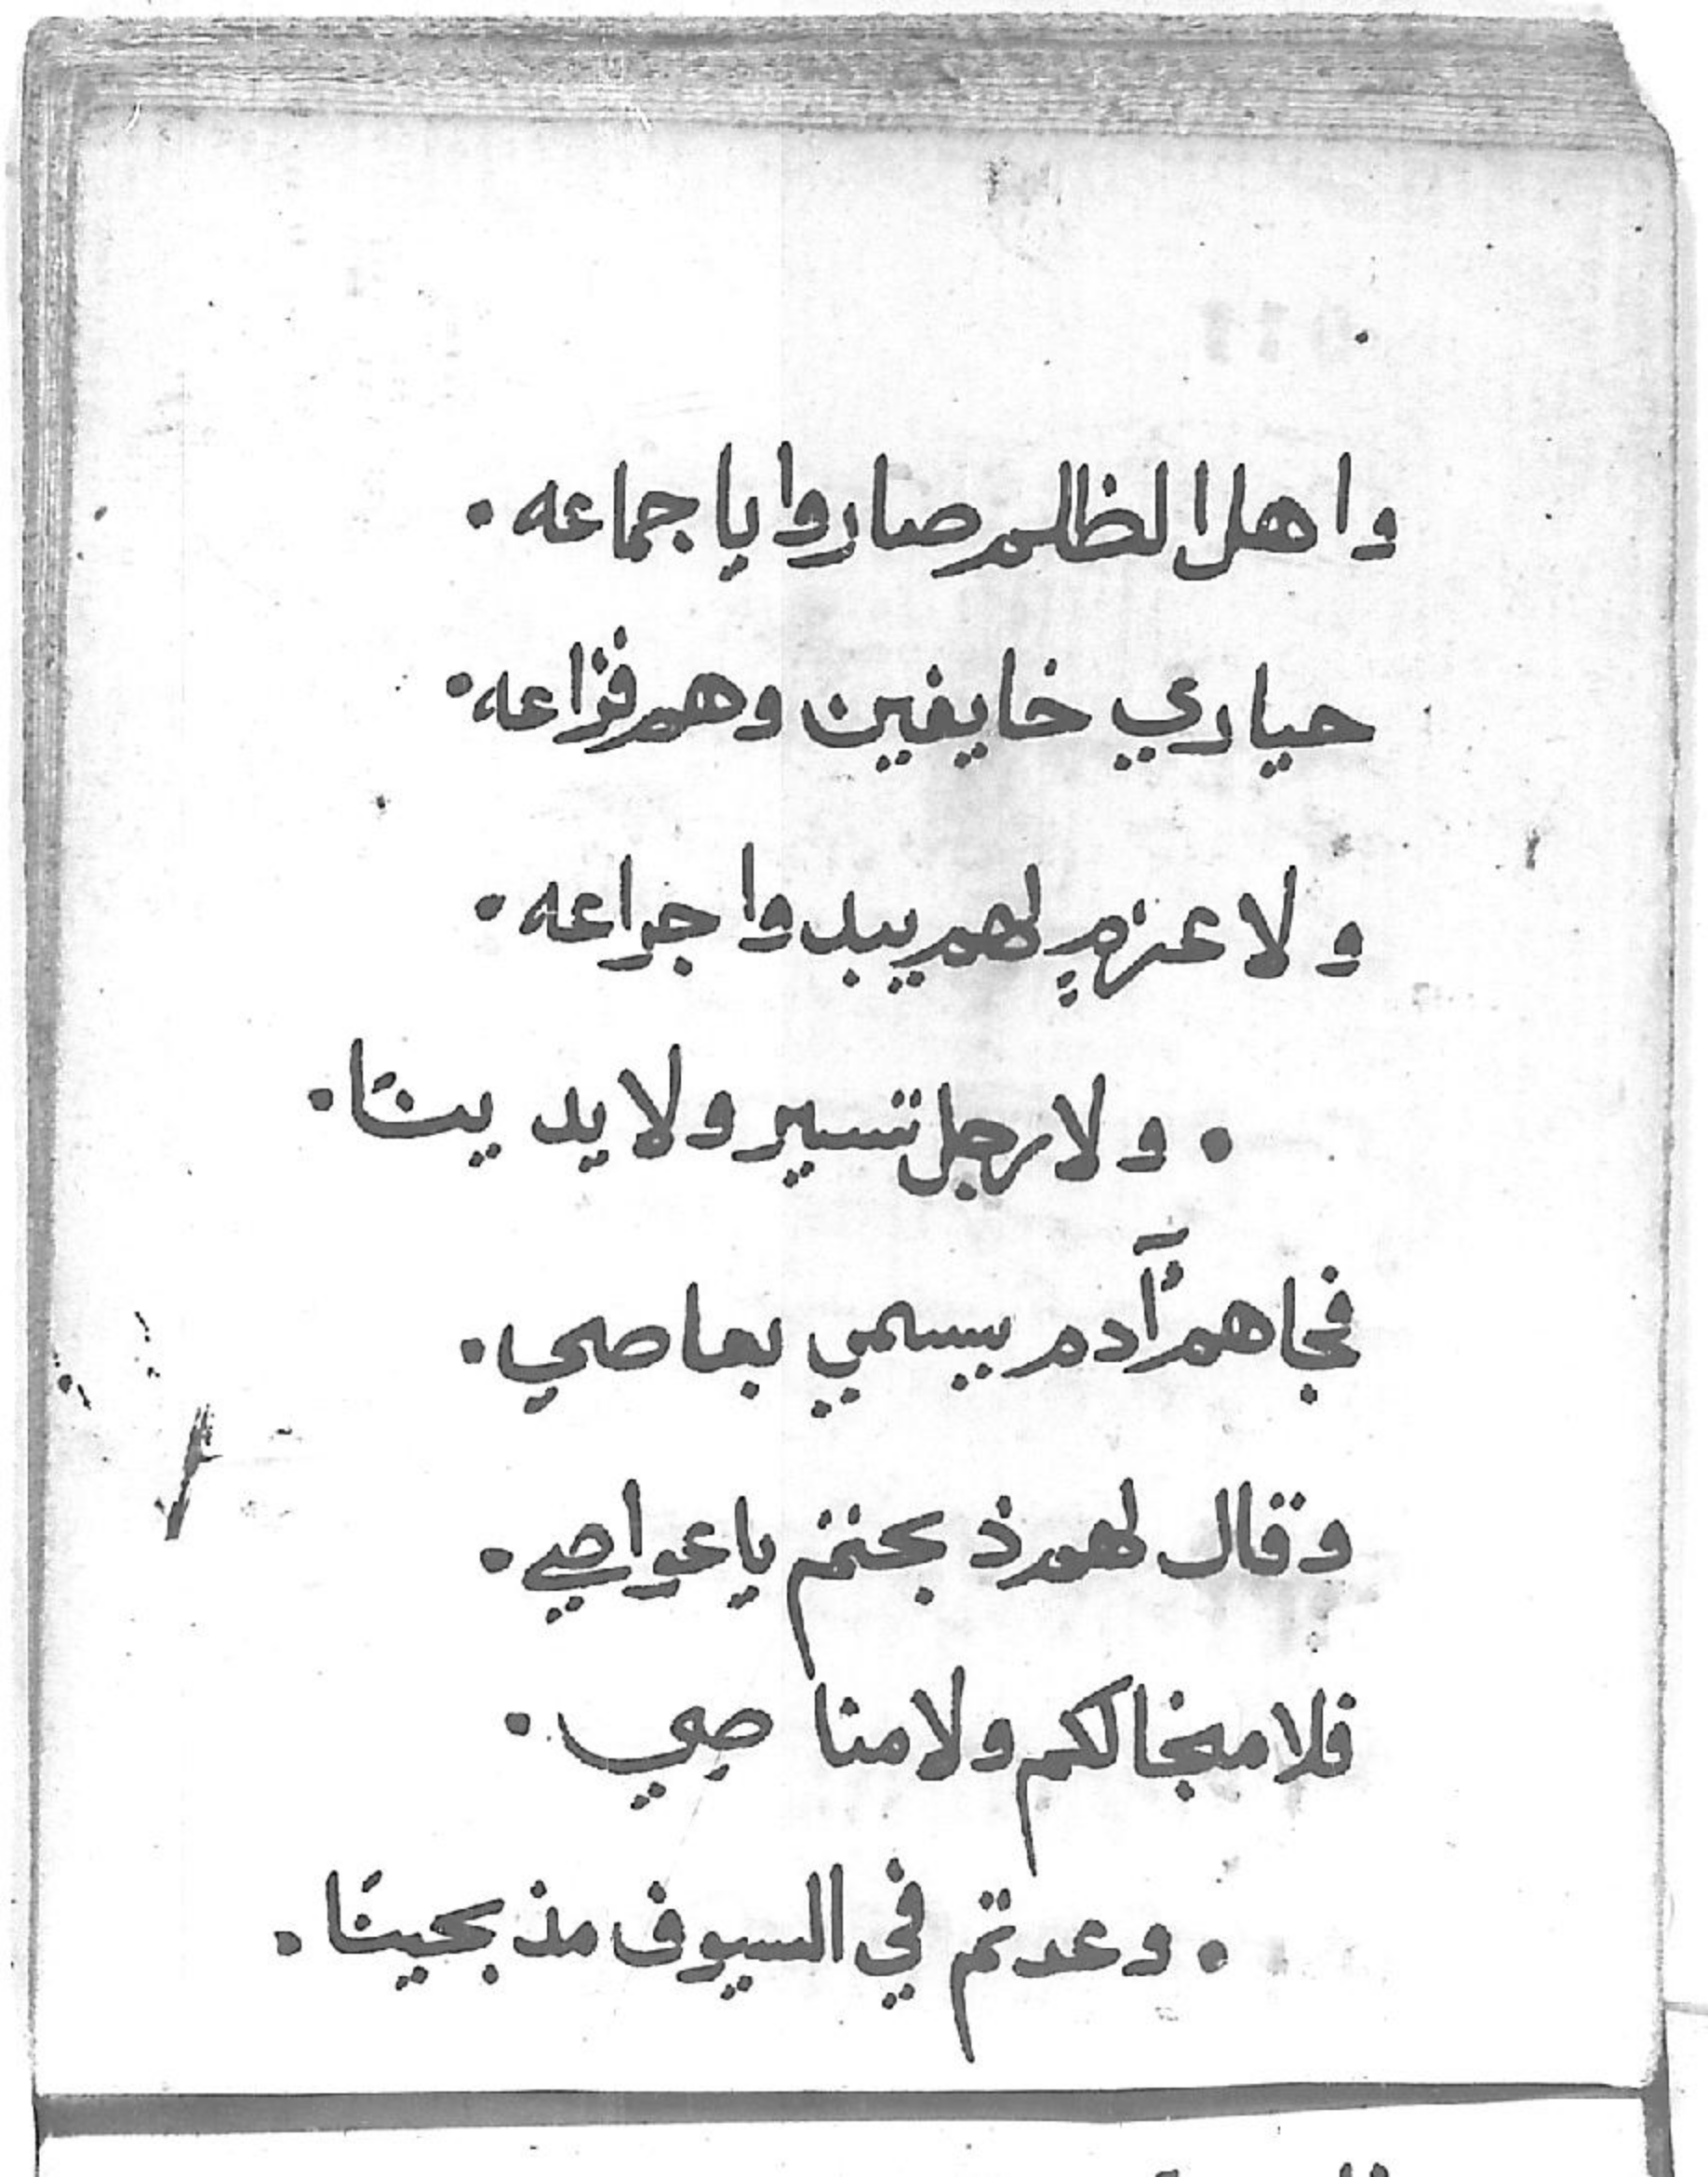 واهل الظلم صاروا يا جماعه.
حياري خايفين وهم فزاعه.
ولا عزمٍ لهم يبدوا جراعه.
. ولا رجل تسير ولا يد ينًا.
فجاهم آدم يسمي بعاصي.
وقال لهم ذبحتم يا عواصي.
فلا منجا لكم ولا مناصي.
. وعدتم في السيوف مذبحينًا.